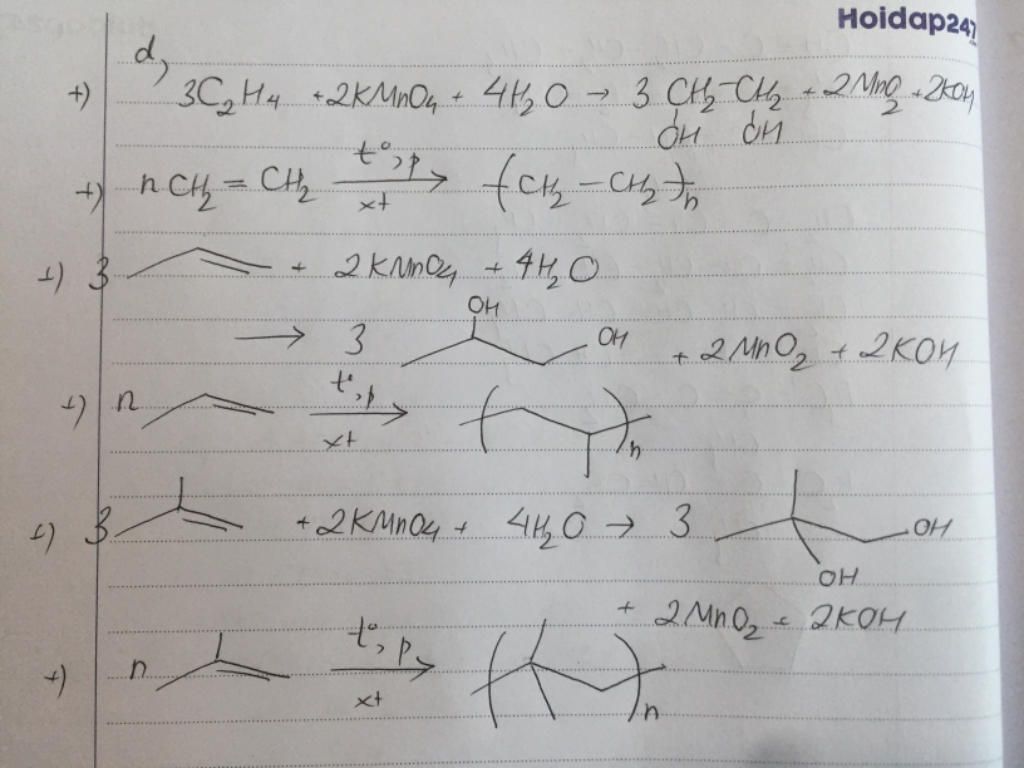 Hoidap247
d,
+) 3C₂H₄ + 2KMnO₄ + 4H₂O → 3 CH₂-CH₂ + 2MnO₂ + 2KOH
OH OH
+) nCH₂ = CH₂ t°, p xt → (CH₂ - CH₂)n
+) 3 + 2KMnO₄ + 4H₂O
→ 3 OH OH + 2MnO₂ + 2KOH
+) n t°, p xt → ( )n
+) 3 + 2KMnO₄ + 4H₂O → 3 OH OH
+ 2MnO₂ + 2KOH
+) n t°, p xt → ( )n